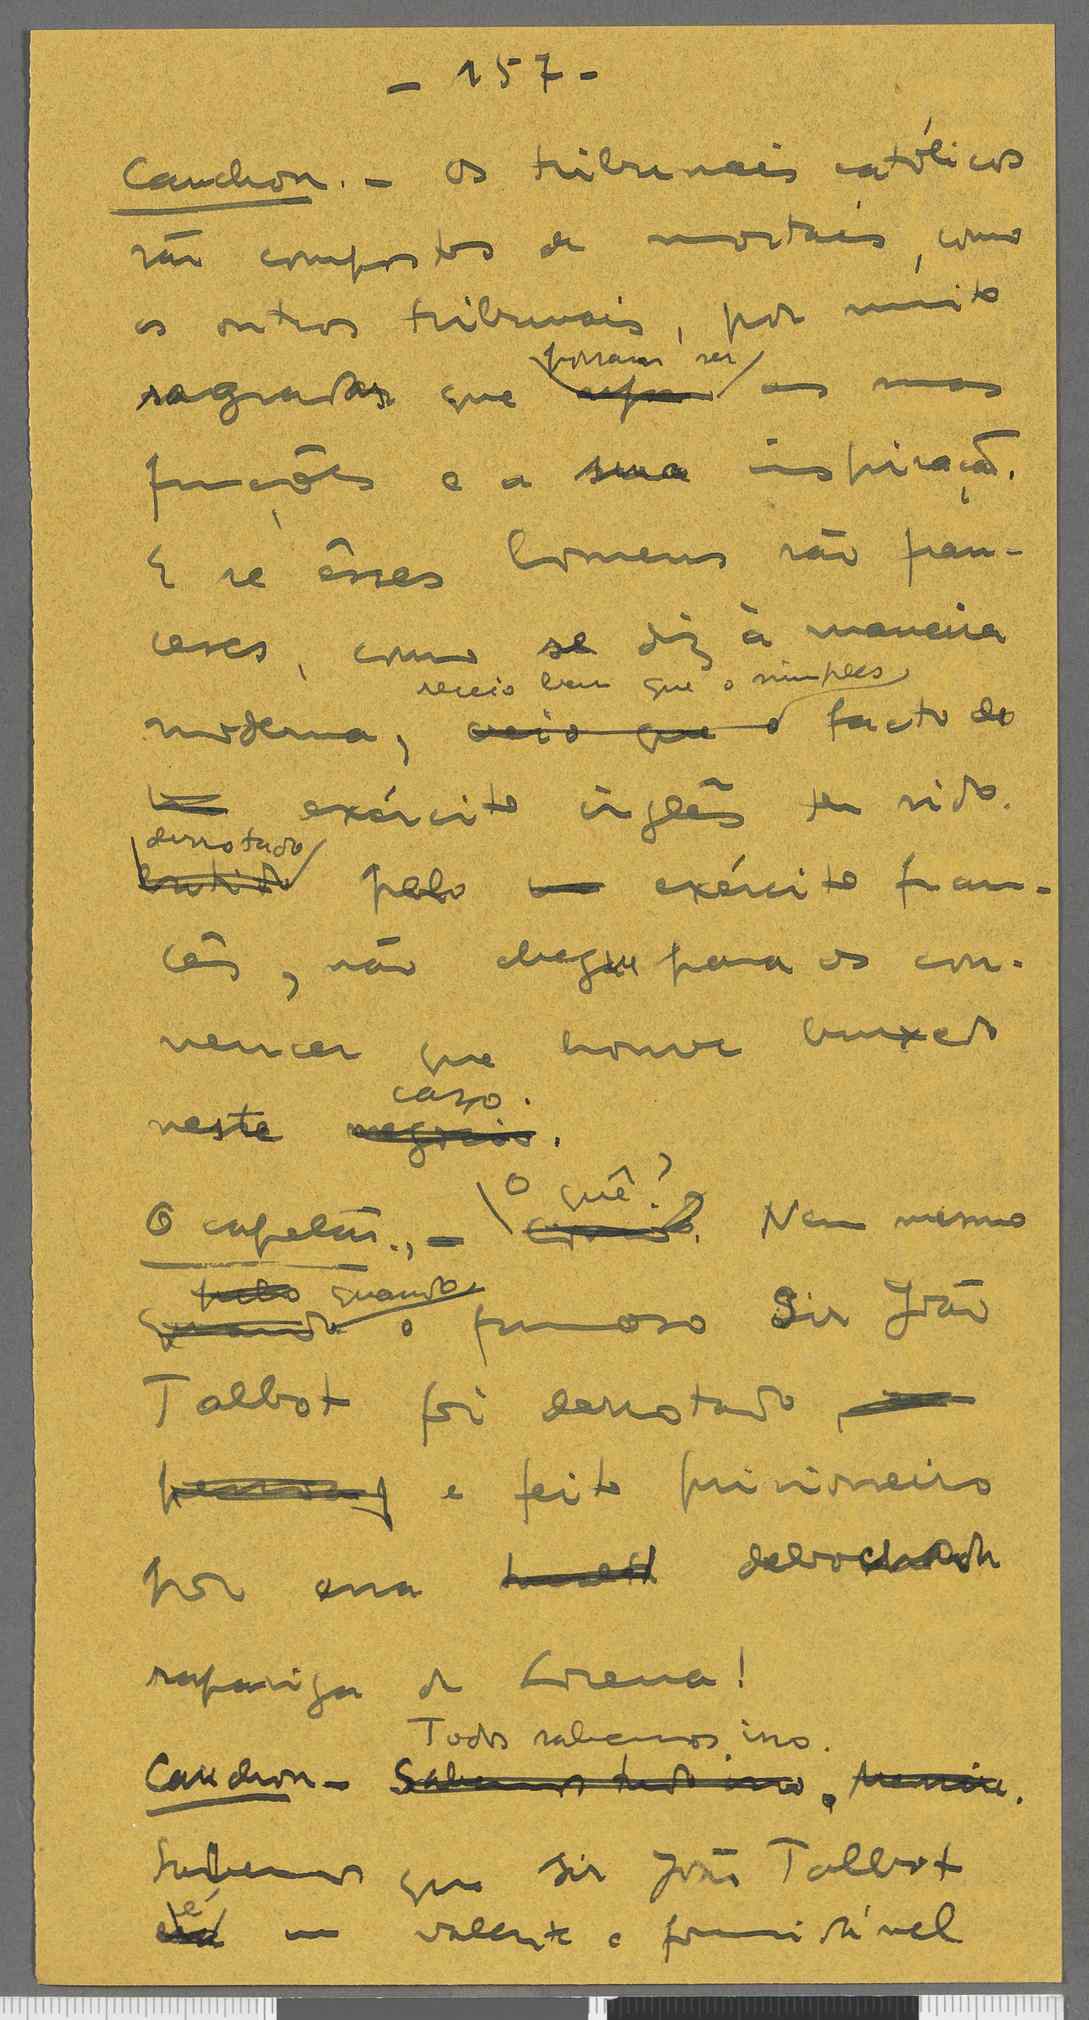 - 157 -
Cauchon. - Os tribunais católicos
são compostos de mortais, como
os outros tribunais, por muito
possam ser
sagradas que sejam as suas
funções e a sua inspiração.
E se êsses homens são fran-
ceses, como se diz à maneira
receio bem que o simples
moderna, creio que o facto do
exército inglês ter sido
derrotado
batido pelo um exército fran-
cês, não chegue para os con-
vencer que houve bruxedo
caso.
neste negócio.
O quê?
O capelão. - Nem mesmo
pelo quando
quando o famoso Sir João
Talbot foi derrotado
e feito prisioneiro
por essa debochada
rapariga de Lorena!
Todos sabemos isso.
Cauchon - Sabemos tudo isso.
Sabemos que Sir João Talbot
é
um valente e formidável